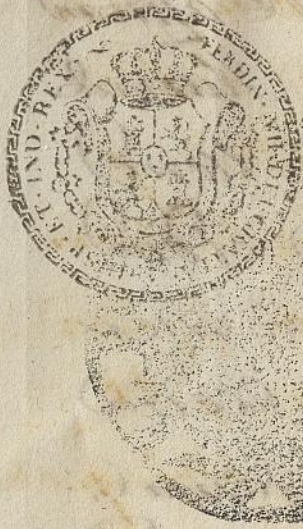 FERDIN· VII· DEI· GRAT·
HISP· ET· IND· REX·